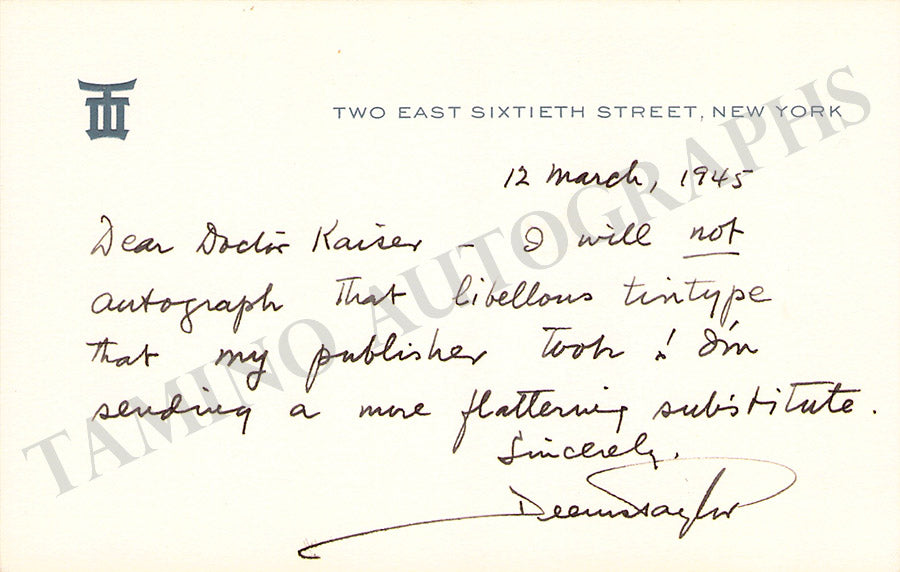 TWO EAST SIXTIETH STREET, NEW YORK
12 March, 1945
Dear Doctor Kaiser - I will not
autograph that libellous tintype
that my publisher took! I'm
sending a more flattering substitute.
Sincerely,
Deems Taylor
TAMINO AUTOGRAPHS